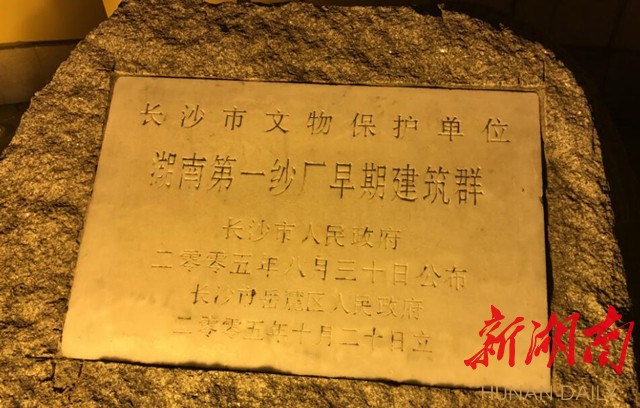 长沙市文物保护单位
湖南第一纱厂早期建筑群
长沙市人民政府
二零零五年八月三十日公布
长沙市岳麓区人民政府
二零零五年十月二十日立
新湖南
HUNAN DAILY